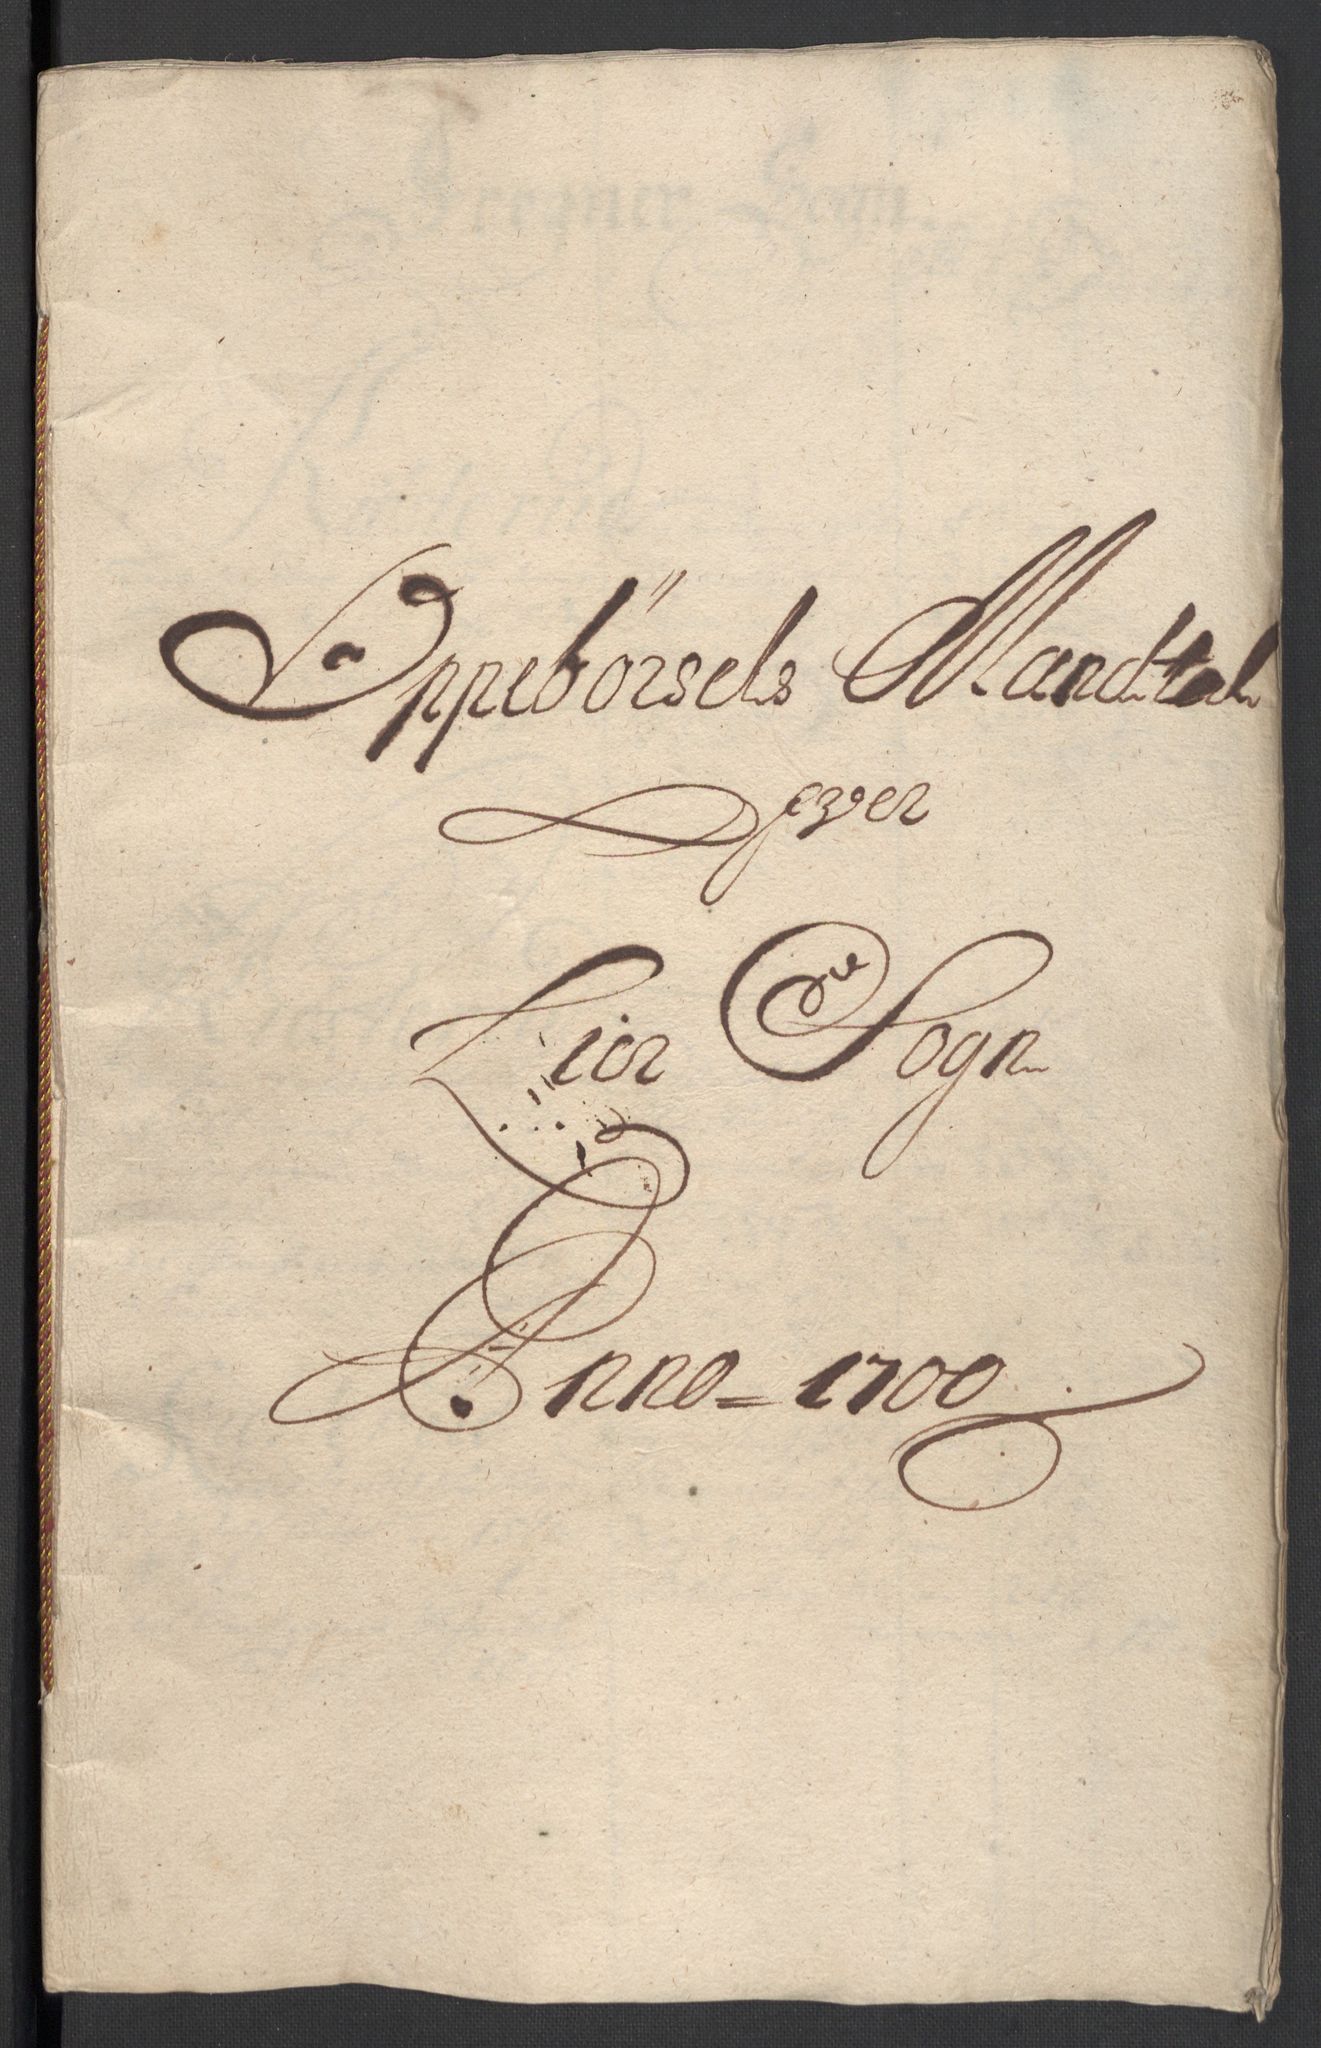 Oppebörsels Mandtal
ofver
Lier Sogn
Anno = 1700